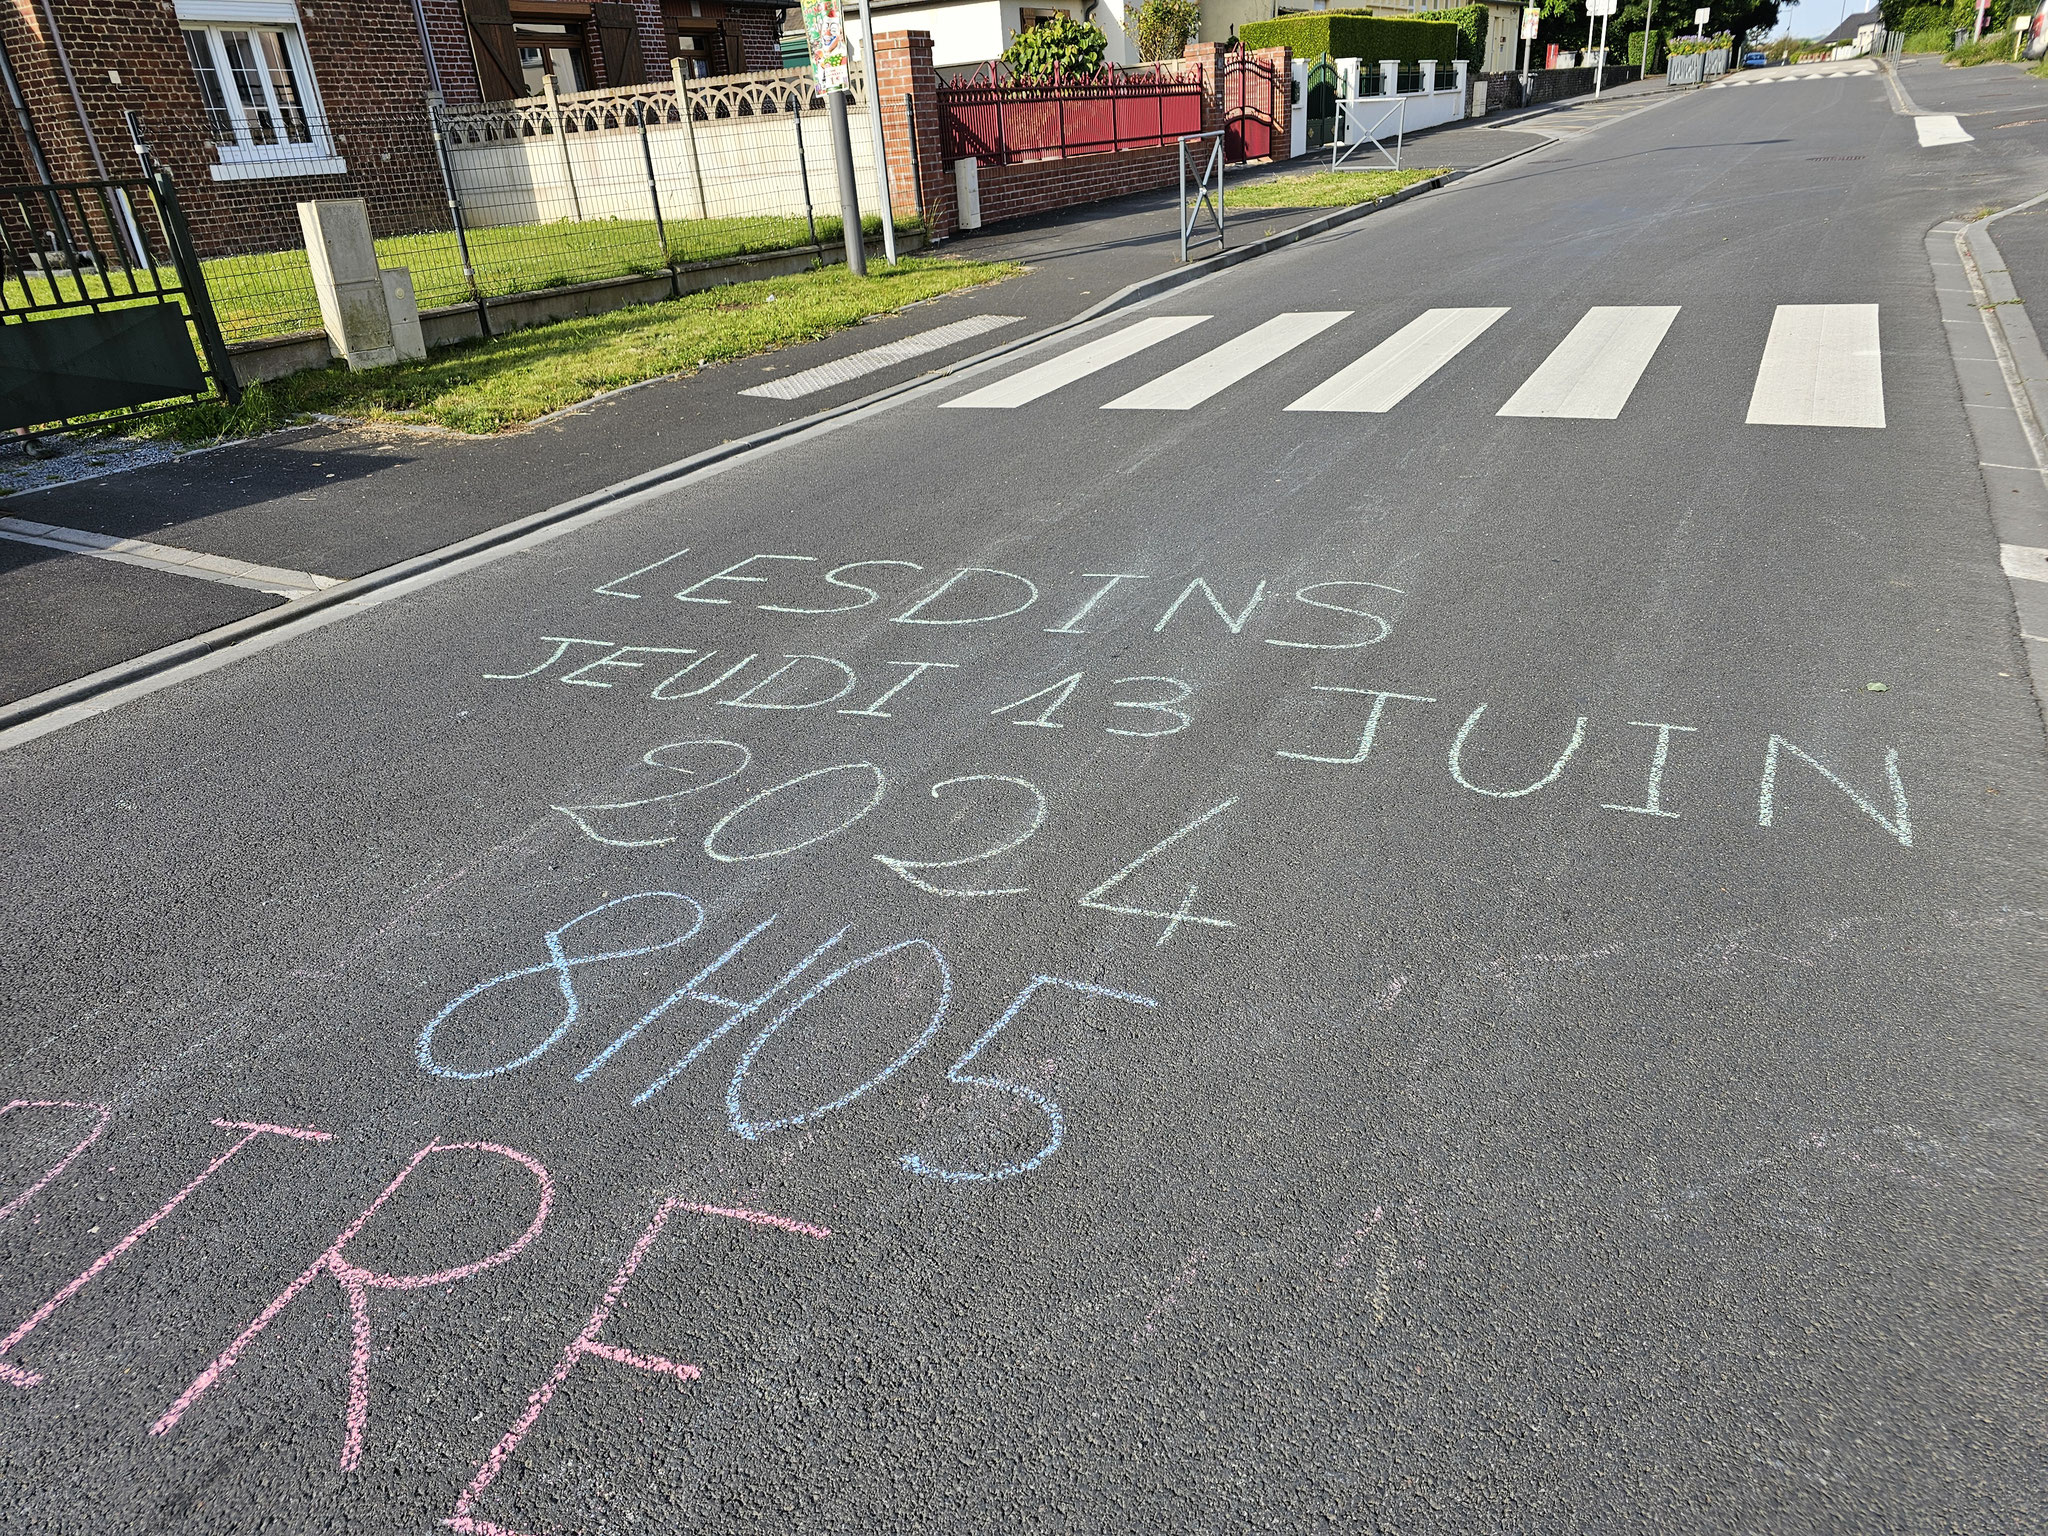 LESDINS
JEUDI 13 JUIN
2024
8H05